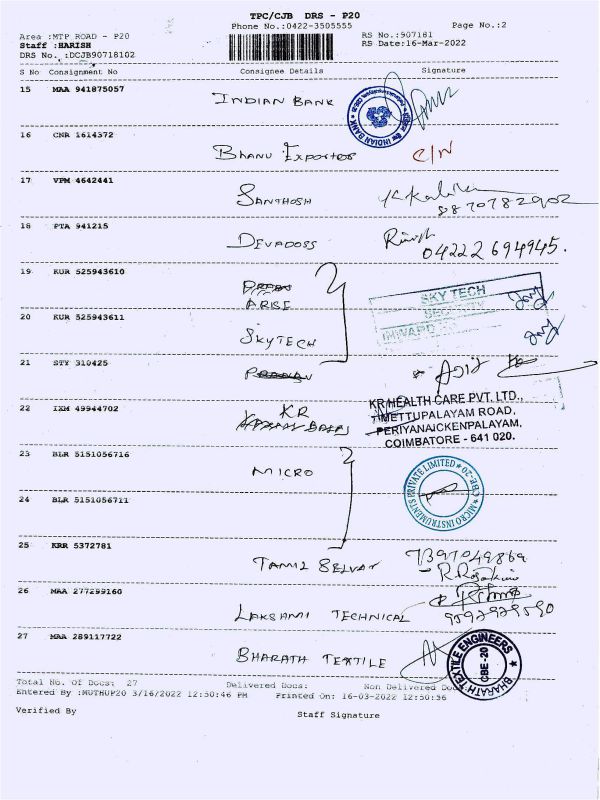 TPC/CJB DRS - P20
Phone No.:0422-3505555
Page No.:2
Area :MTP ROAD - P20
RS No.:907181
Staff :HARISH
RS Date:16-Mar-2022
DRS No. :DCJB90718102
S No Consignment No Consignee Details Signature
15 MAA 941875057 INDIAN BANK
INDIAN BANK
16 CNR 1614372 BHANU Exporters C/N
17 VPM 4642441 SANTHOSH
8870782902
18 PTA 941215 DEVADOSS
04222694945.
19 KUR 525943610
ARISE
SKY TECH
SECURITY
INWARD
20 KUR 525943611 SKYTECH
21 STY 310425
22 IXM 49944702 KR
KR HEALTH CARE PVT. LTD.,
METTUPALAYAM ROAD,
PERIYANAICKENPALAYAM,
COIMBATORE - 641 020.
23 BLR 5151056716 MICRO
MICRO INSTRUMENTS PRIVATE LIMITED * CBE-20 *
24 BLR 5151056711
25 KRR 5372781 TAMIL SELVAN
26 MAA 277299160 LAKSHMI TECHNICAL
27 MAA 289117722 BHARATH TEXTILE
BHARATH TEXTILE ENGINEERS CBE-20
Total No. Of Docs: 27 Delivered Docs: Non Delivered Docs:
Entered By :MUTHUP20 3/16/2022 12:50:46 PM Printed On: 16-03-2022 12:50:56
Verified By Staff Signature